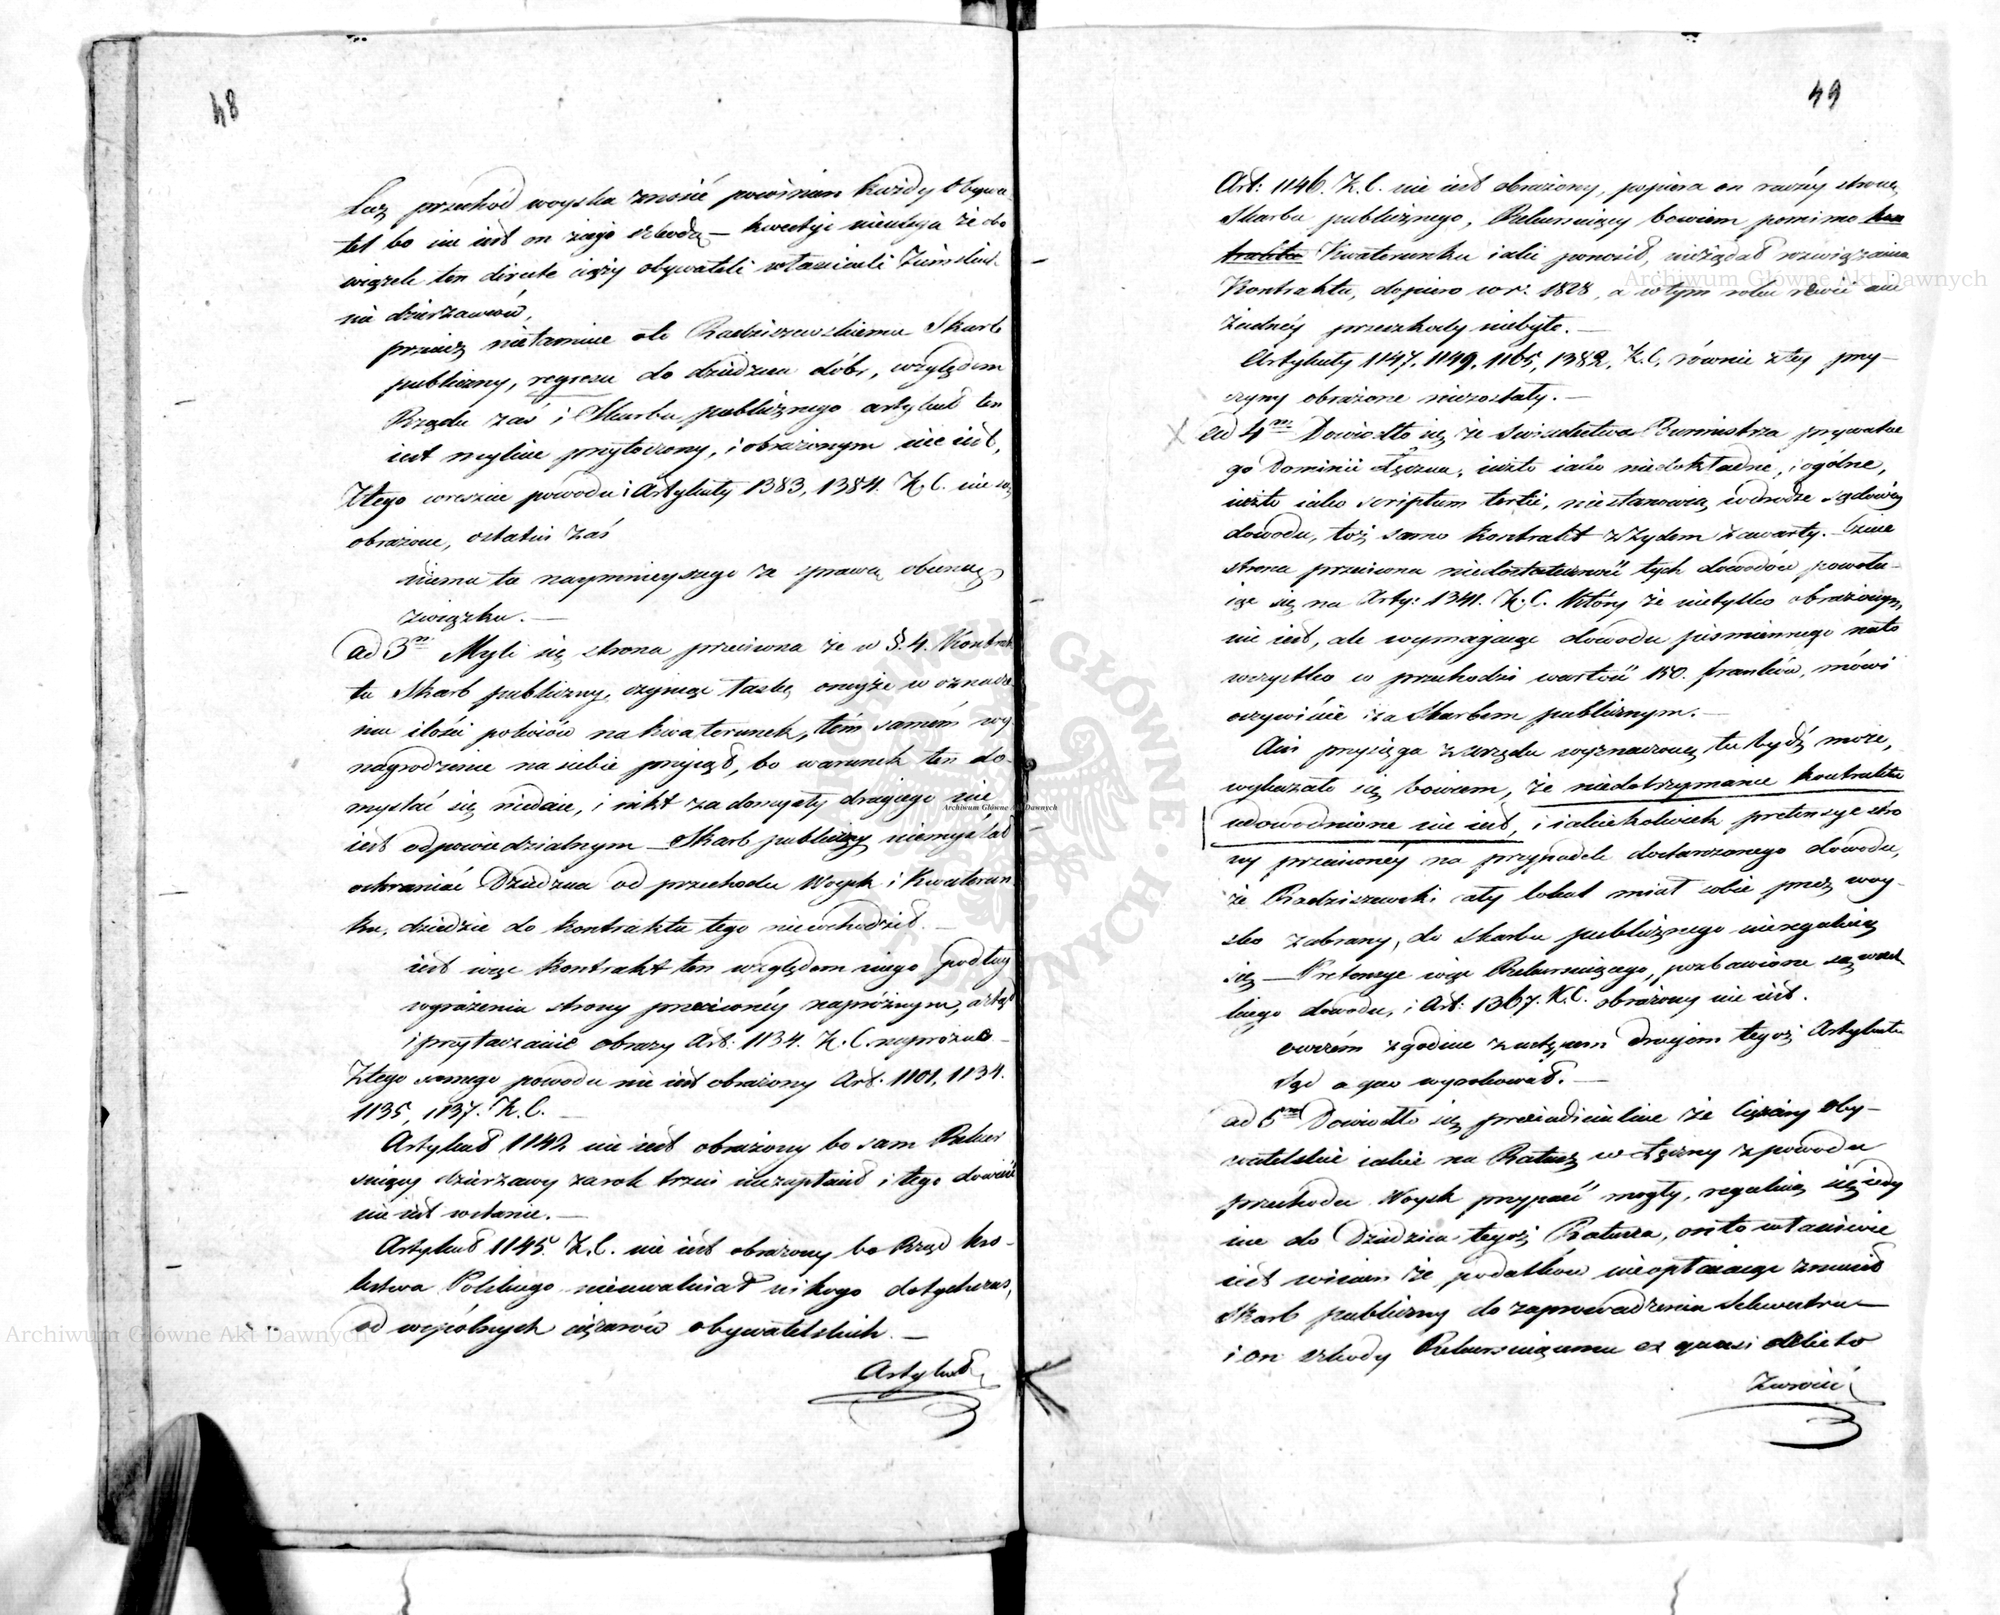 48
lecz przechód woyska znosić powinien każdy Obywa-
tel bo nie iest on iego szkodą — kwestyi nieulega że obo
wiązek ten directe ciąży obywateli właścicieli Ziemskich
nie dzierzawców,
przeciez nietamuie oto Radziszewskiemu Skarb
publiczny, regresu do dziedzica dóbr, względem
Rządu zaś i Skarbu publicznego artykuł ten
iest mylnie przytoczony, i obrażonym nie iest,
Ztego wreszcie powodu i Artykuły 1383, 1384. K. C. nie są
obrażone, ostatni zaś
niema tu naymnieyszego ze sprawą obecną
związku. —
ad 3m Myli się strona przeciwna że w §. 4. Kontrak
tu Skarb publiczny, czyniąc łaskę onejże w oznacze
niu ilości pokoiów na kwaterunek, tém samém wy
nagrodzenie na siebie przyiął, bo warunek ten do-
myślać się niedaie, i nikt za domysły drugiego nie
iest odpowiedzialnym — Skarb publiczny niemyślał
ochraniać Dziedzica od przechodu Woysk i Kwaterun
ku, dziedzic do kontraktu tego niewchodził. —
iest więc kontrakt ten względem niego podług
wyrażenia strony przeciwnéy napróżnym, ztąd
i przytaczanie obrazy Art: 1134. K. C. napróżne —
Ztego samego powodu nie iest obrażony Art. 1101, 1134.
1135, 1137. K. C. —
Artykuł 1142 nie iest obrażony bo sam Rekur
suiący dzierżawy za rok trzeci niezapłacił i tego dowieść
nie iest wstanie. —
Artykuł 1145. K. C. nie iest obrażony bo Rząd Kró-
lestwa Polskiego nieuwalniał nikogo dotychczas,
od wspólnych ciężarów obywatelskich. —
Artykuł
49
Art: 1146. K. C. nie iest obrażony, popiera on raczéy stronę
Skarbu publicznego, Rekursuiący bowiem pomimo kon
traktu Kwaterunku iaki ponosił, nieżądał rozwiązania
Kontraktu, dopiero w r: 1828, a wtym roku
żadnéy przeszkody niebyło. —
Artykuły 1147, 1149, 1165, 1382, K. C. równie ztey przy-
czyny obrażone niezostały. —
ad 4m Dowiodło się że świadectwa Burmistrza prywatne
go Dominii Łęczna, iużto iako niedokładne, i ogólne,
iużto iako scriptum tertii, niestanowią wdrodze sądowéy
dowodu, toż samo kontrakt z Żydem zawarty.
strona przeciwna niedostateczność tych dowodów powołu-
ie się na Arty: 1341. K. C. Który że nietylko obrażonym
nie iest, ale wymagaiąc dowodu pismiennego nato
wszystko co przechodzi wartość 150. franków, mówi
oczywiście za Skarbem publicznym. —
Ani przysięga z urzędu wyznaczoną tu bydź może,
wykazało się bowiem, że niedotrzymanie kontraktu
udowodnione nie iest, i iakiekolwiek pretensye stro
ny przeciwney na przypadek dostarczonego dowodu,
że Radziszewski cały lokal miał sobie przez woy-
sko zabrany, do Skarbu publicznego nieregulują
się — Pretensye więc Rekursuiącego, pozbawione są wszel
kiego dowodu, i Art: 1367. K. C. obrażony nie iest.
owszém zgodnie z ustępem drugim tegoż Artykułu
Sąd a quo wyrokował. —
ad 5m Dowiodło się że Ciężary oby-
watelskie iakie na Ratusz w Łęczny z powodu
przechodu Woysk przypaść mogły, regulują się iedy
nie do Dziedzica tegoż Ratusza, onto właściwie
iest winien że podatków nieopłacaiąc zmusił
Skarb publiczny do zaprowadzenia Sekwestru —
i on szkody Rekursuiącemu ex quasi delicto
Zwrócić